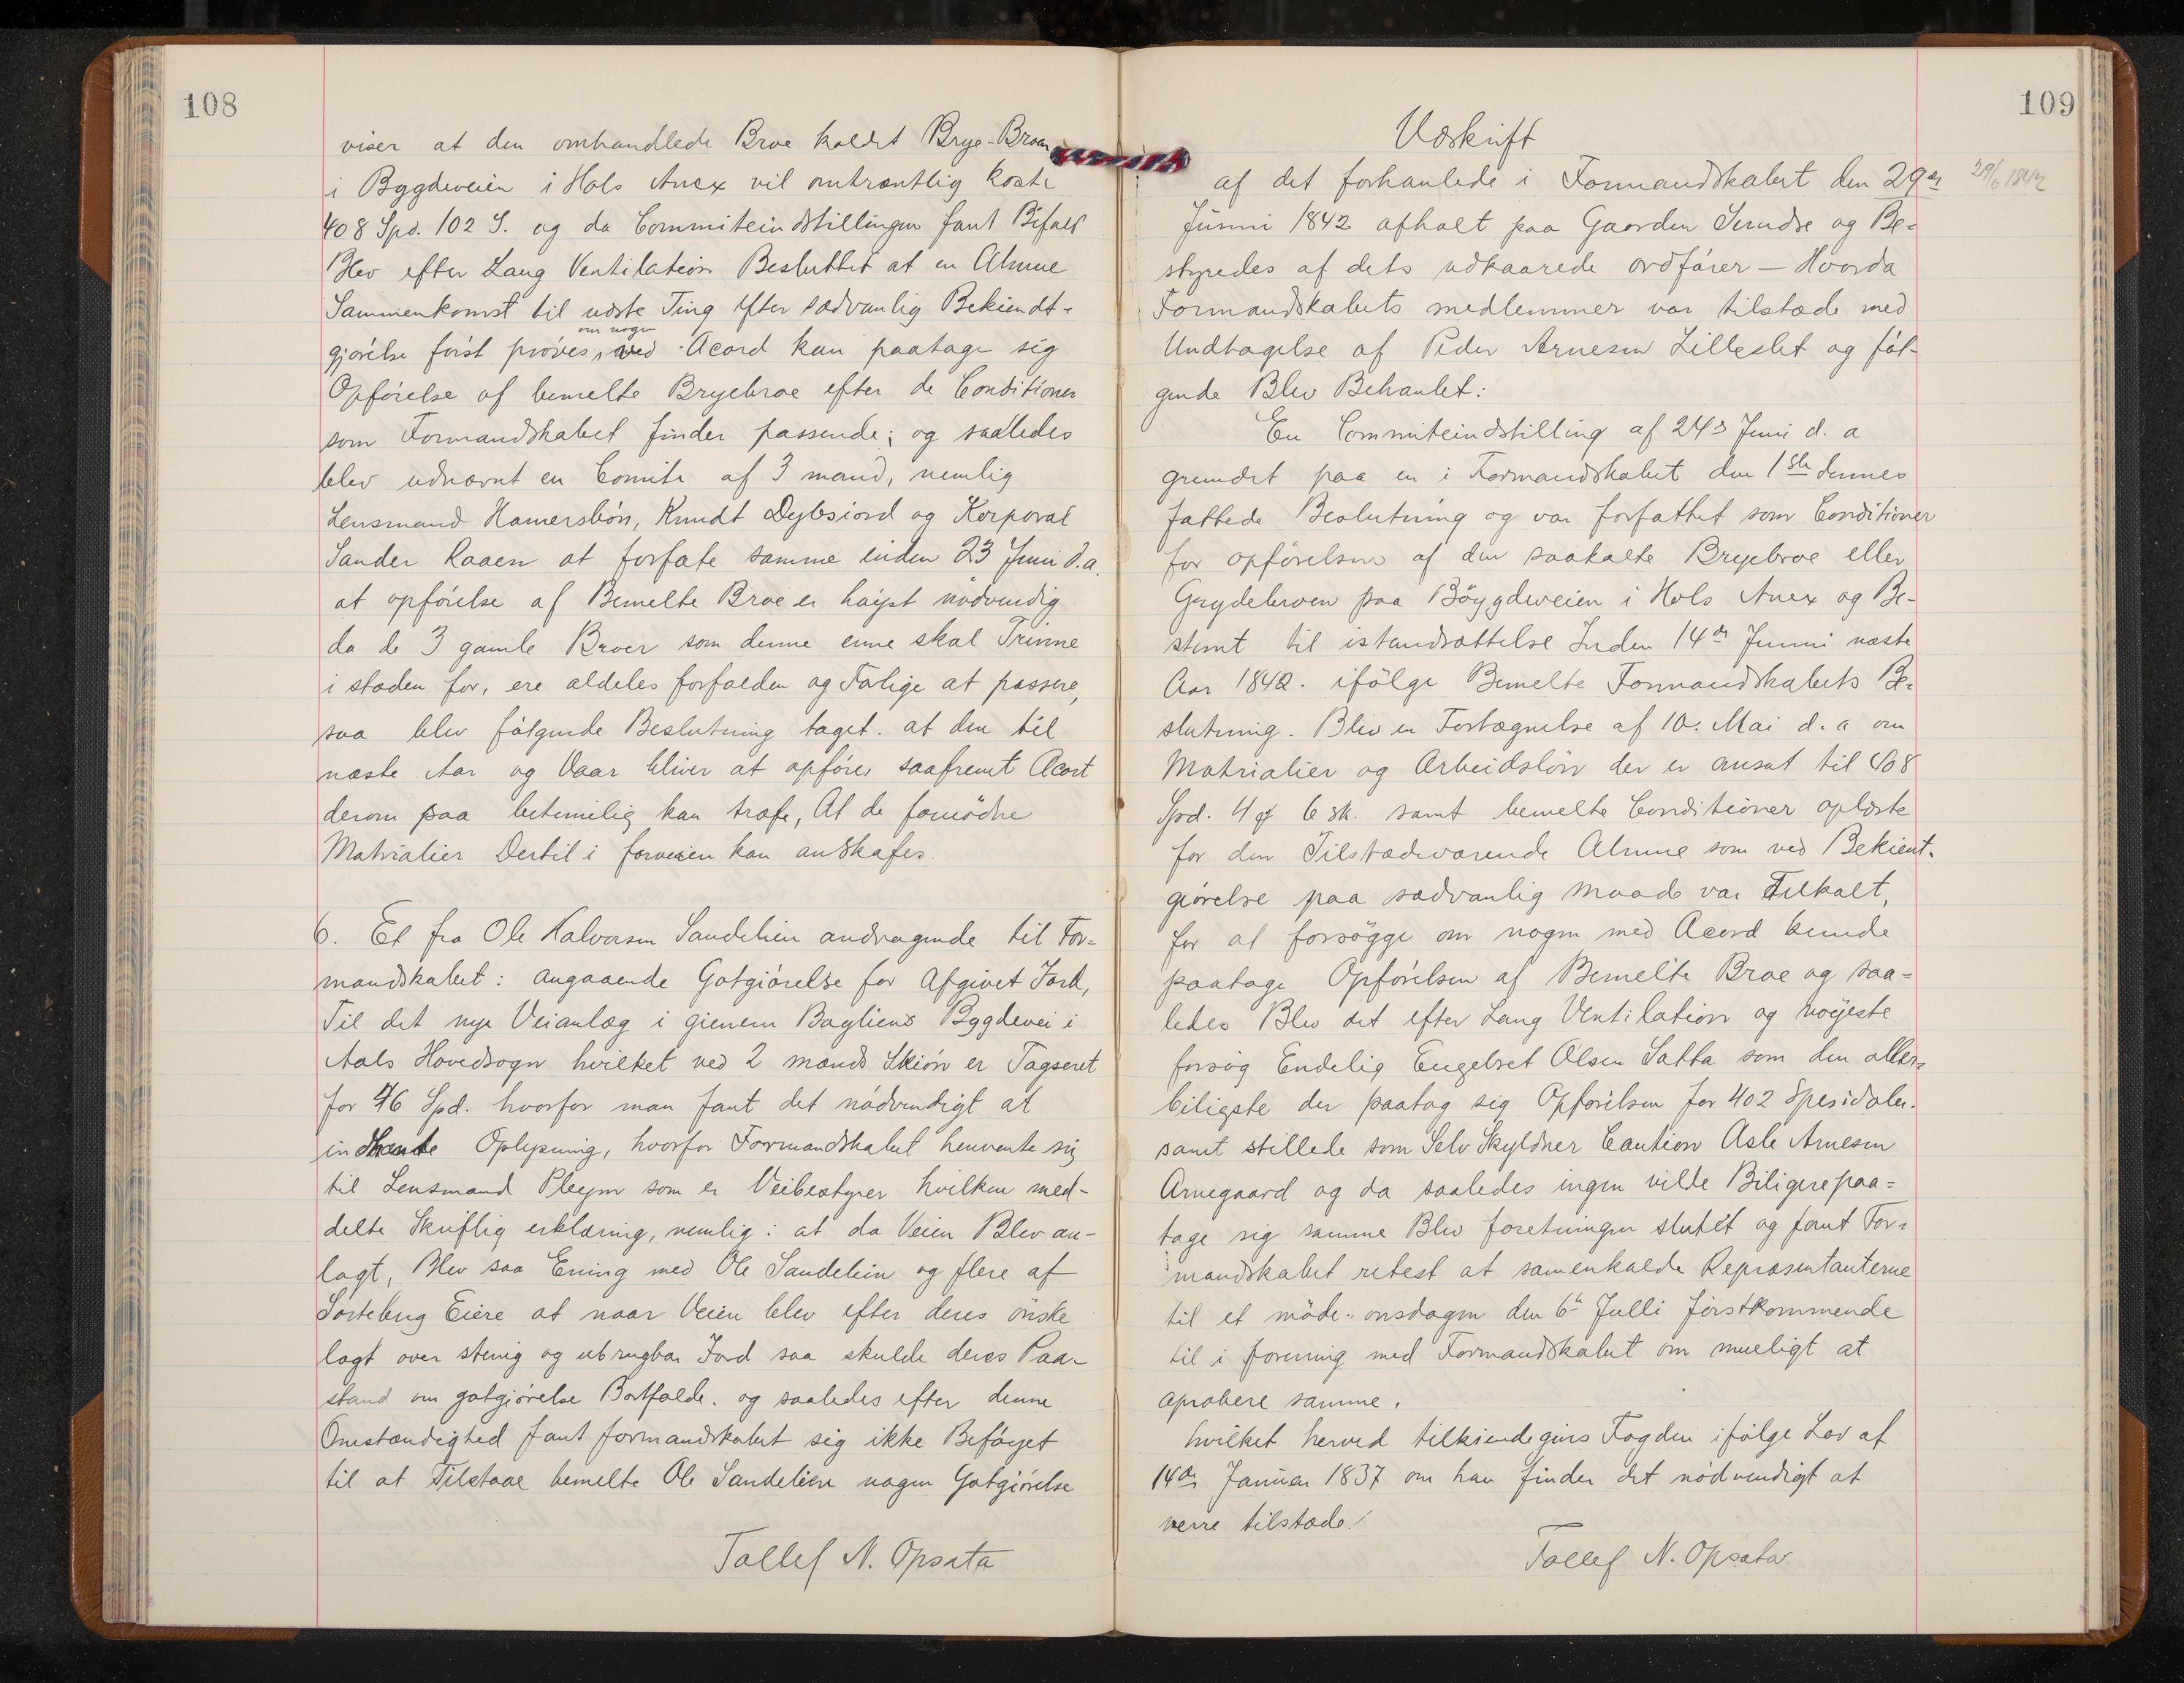 108
viser at den omhandlede Broe kaldet Brye-Broen
i Bygdeveien i Hols Anex vil omtræntlig koste
408 Spd. 102 S. og da Commiteindstillingen fant Bifald
Blev efter Lang Ventilation Besluttet at en Almue
Sammenkomst til næste Ting efter sædvanlig Bekiendt-
gjørelse først prøves, om nogen ved Acord kan paatage sig
Opførelse af bemelte Bryebroe efter de Conditioner
som Formandskabet finder passende; og saaledes
blev udnævnt en Comite af 3 mand, nemlig
Lensmand Hamersbøn, Knudt Dybsiord og Korporal
Sander Raaen at forfate samme inden 23 Juni d.a.
at opførelse af Bemelte Broe er høist nødvendig
da de 3 gamle Broer som denne enne skal Trinne
i stæden for, ere aldeles forfalden og Farlige at passere,
saa blev følgende Beslutning taget. at den til
næste Aar og Vaar bliver at opføres saafremt Acort
derom paa betimelig kan træfe, At de fornødne
Matrialier Dertil i forveien kan anskafes.
6. Et fra Ole Halvorsen Sandelien andragende til For=
mandskabet: angaaende Gotgiørelse for Afgivet Jord,
Til det nye Veianlæg i gienem Bagliens Bygdevei i
Aals Hovedsogn hvilket ved 2 mands Skiøn er Tagseret
for 46 Spd. hvorfor man fant det nødvendigt at
indhente Oplysning, hvorfor Formandskabet henvente sig
til Lensmand Pleym som er Veibestyrer hvilken med-
delte Skriftlig erklæring, nemlig: at da Veien Blev an-
lagt, Blev saa Ening med Ole Sandelien og flere af
Sorteberg Eiere at naar Veien blev efter deres ønske
lagt over stenig og ubrugbar Jord saa skulde deres Paa-
stand om gotgiørelse Bortfalde. og saaledes efter denne
Omstændighed fant formandskabet sig ikke Beføyet
til at Tilstaae bemelte Ole Sandelien nogen Gotgiørelse
Tollef N. Opsata
109
Udskrift
af det forhanlede i Formandskabet den 29de 29/6 1842
Junni 1842 afholt paa Gaarden Sundre og Be-
styredes af dets udkaarede ordfører - Hvorda
Formandskabets medlemmer var tilstæde med
Undtagelse af Peder Arnesen Lilleslet og føl-
gende Blev Behanlet:
En Commiteindstilling af 24de Juni d. a
grundet paa en i Formandskabet den 1ste dennes
fattede Beslutning og var forfattet som Conditioner
for opførelsen af den saakalte Bryebroe eller
Grydebroen paa Bøygdeveien i Hols Anex og Be-
stemt til istandsættelse Inden 14de Junni næste
Aar 1842. ifølge Bemelte Formandskabets Be-
slutning. Blev en Fortægnelse af 10. Mai d. a om
Matrialier og Arbeidsløn der er ansat til 408
Spd. 4 ort 6 sk. samt bemelte Conditioner oplæste
for den Tilstædeværende Almue som ved Bekient-
giørelse paa sædvanlig Maade var Tilkalt,
for at forsøgge om nogen med Acord kunde
paatage Opførelsen af Bemelte Broe og saa=
ledes Blev det efter Lang Ventilation og nøyeste
forsøg Endelig Engebret Olsen Satta som den aller-
biligste der paatog sig Opførelsen for 402 Spesidaler.
samt stillede som Selv Skyldner Caution Asle Arnesen
Arnegaard og da saaledes ingen vilde Biligere paa=
tage sig samme Blev foretningen slutet og fant For-
mandskabet retest at samenkalde Repræsentanterne
til et møde. onsdagen den 6te Julli førstkommende
til i forening med Formandskabet om mueligt at
aprobere samme.
hvilket herved tilkiendegives Fogden ifølge Lov af
14de Januar 1837 om han finder det nødvendigt at
være tilstæde!
Tollef N. Opsata